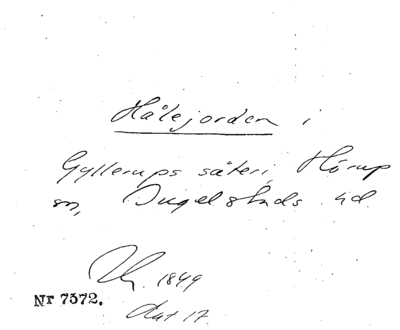 Hålejorden i
Gyllerups säteri, Hörup
sn, Ingelstads hd.
1849
Nr 7572.
dat 17